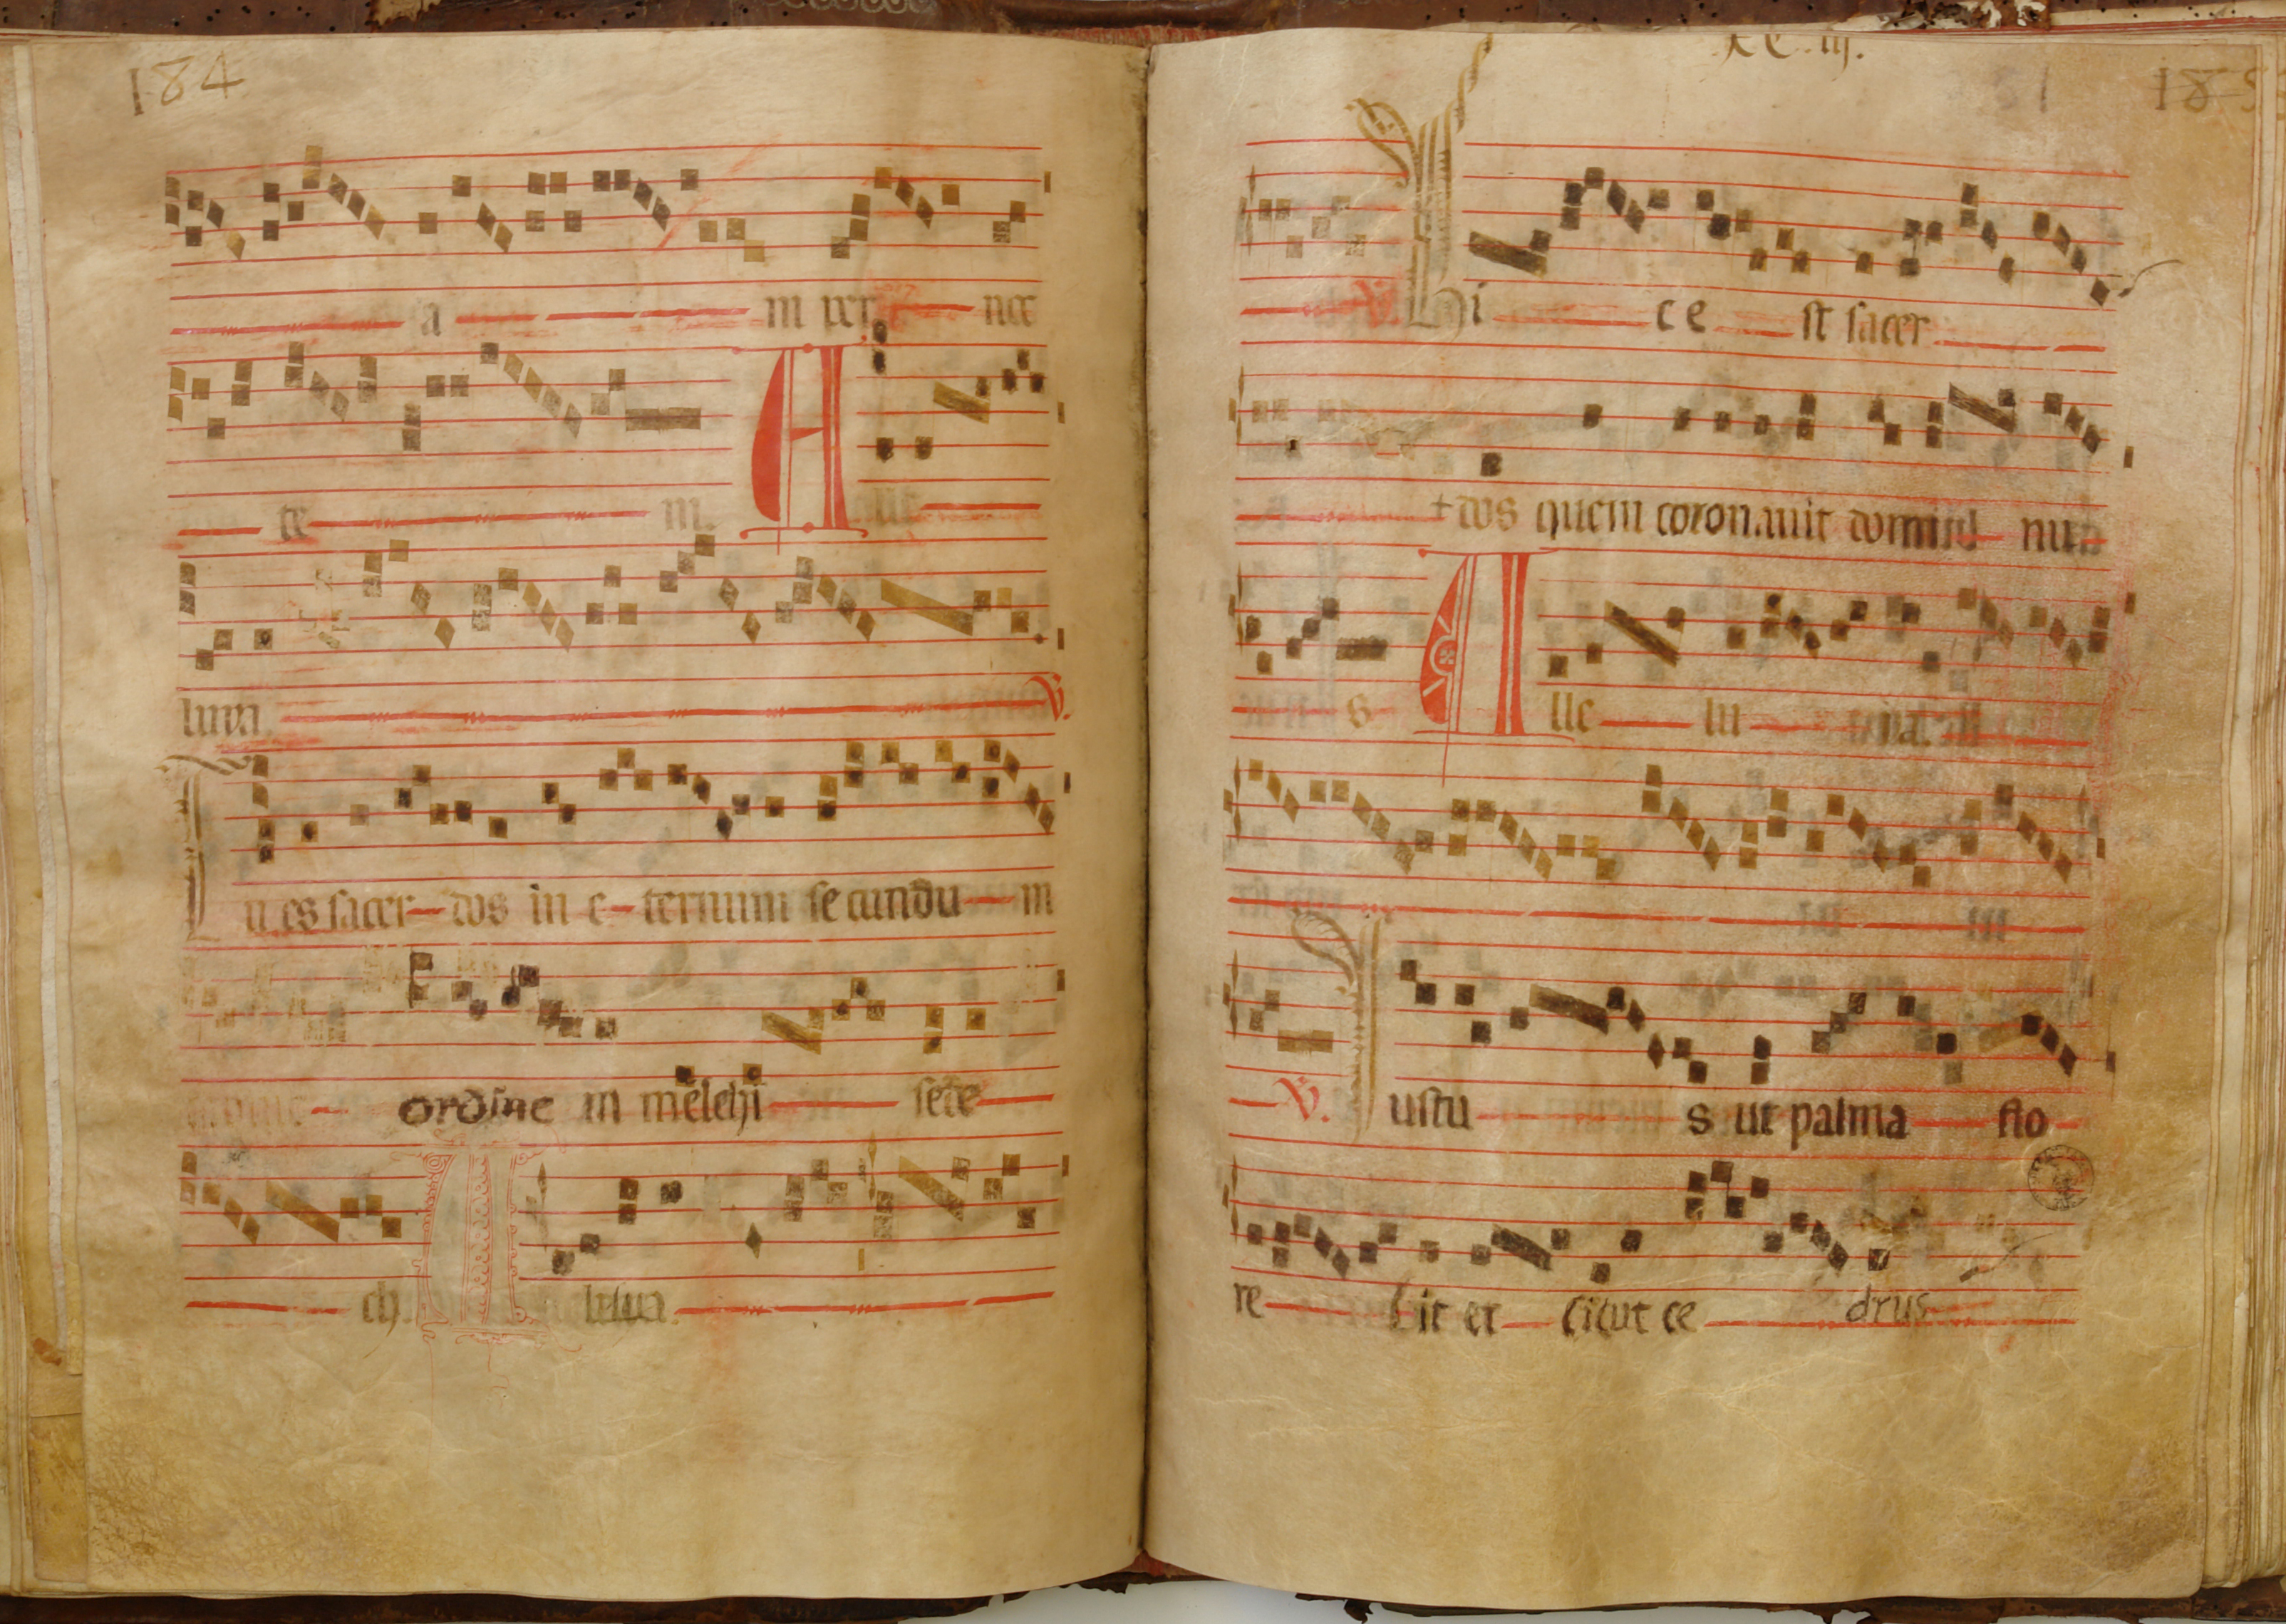 184
a in per nce
te m. A lle
luya. V.
Tu es sacer dos in e ternum secundu m
ordine m melchi sede
ch. A leluia.
185
V. Hi c e st sacer
dos quem coronauit domi nu
s A lle lu ya.
V. Iustu s ut palma flo
re bit et sicut ce drus